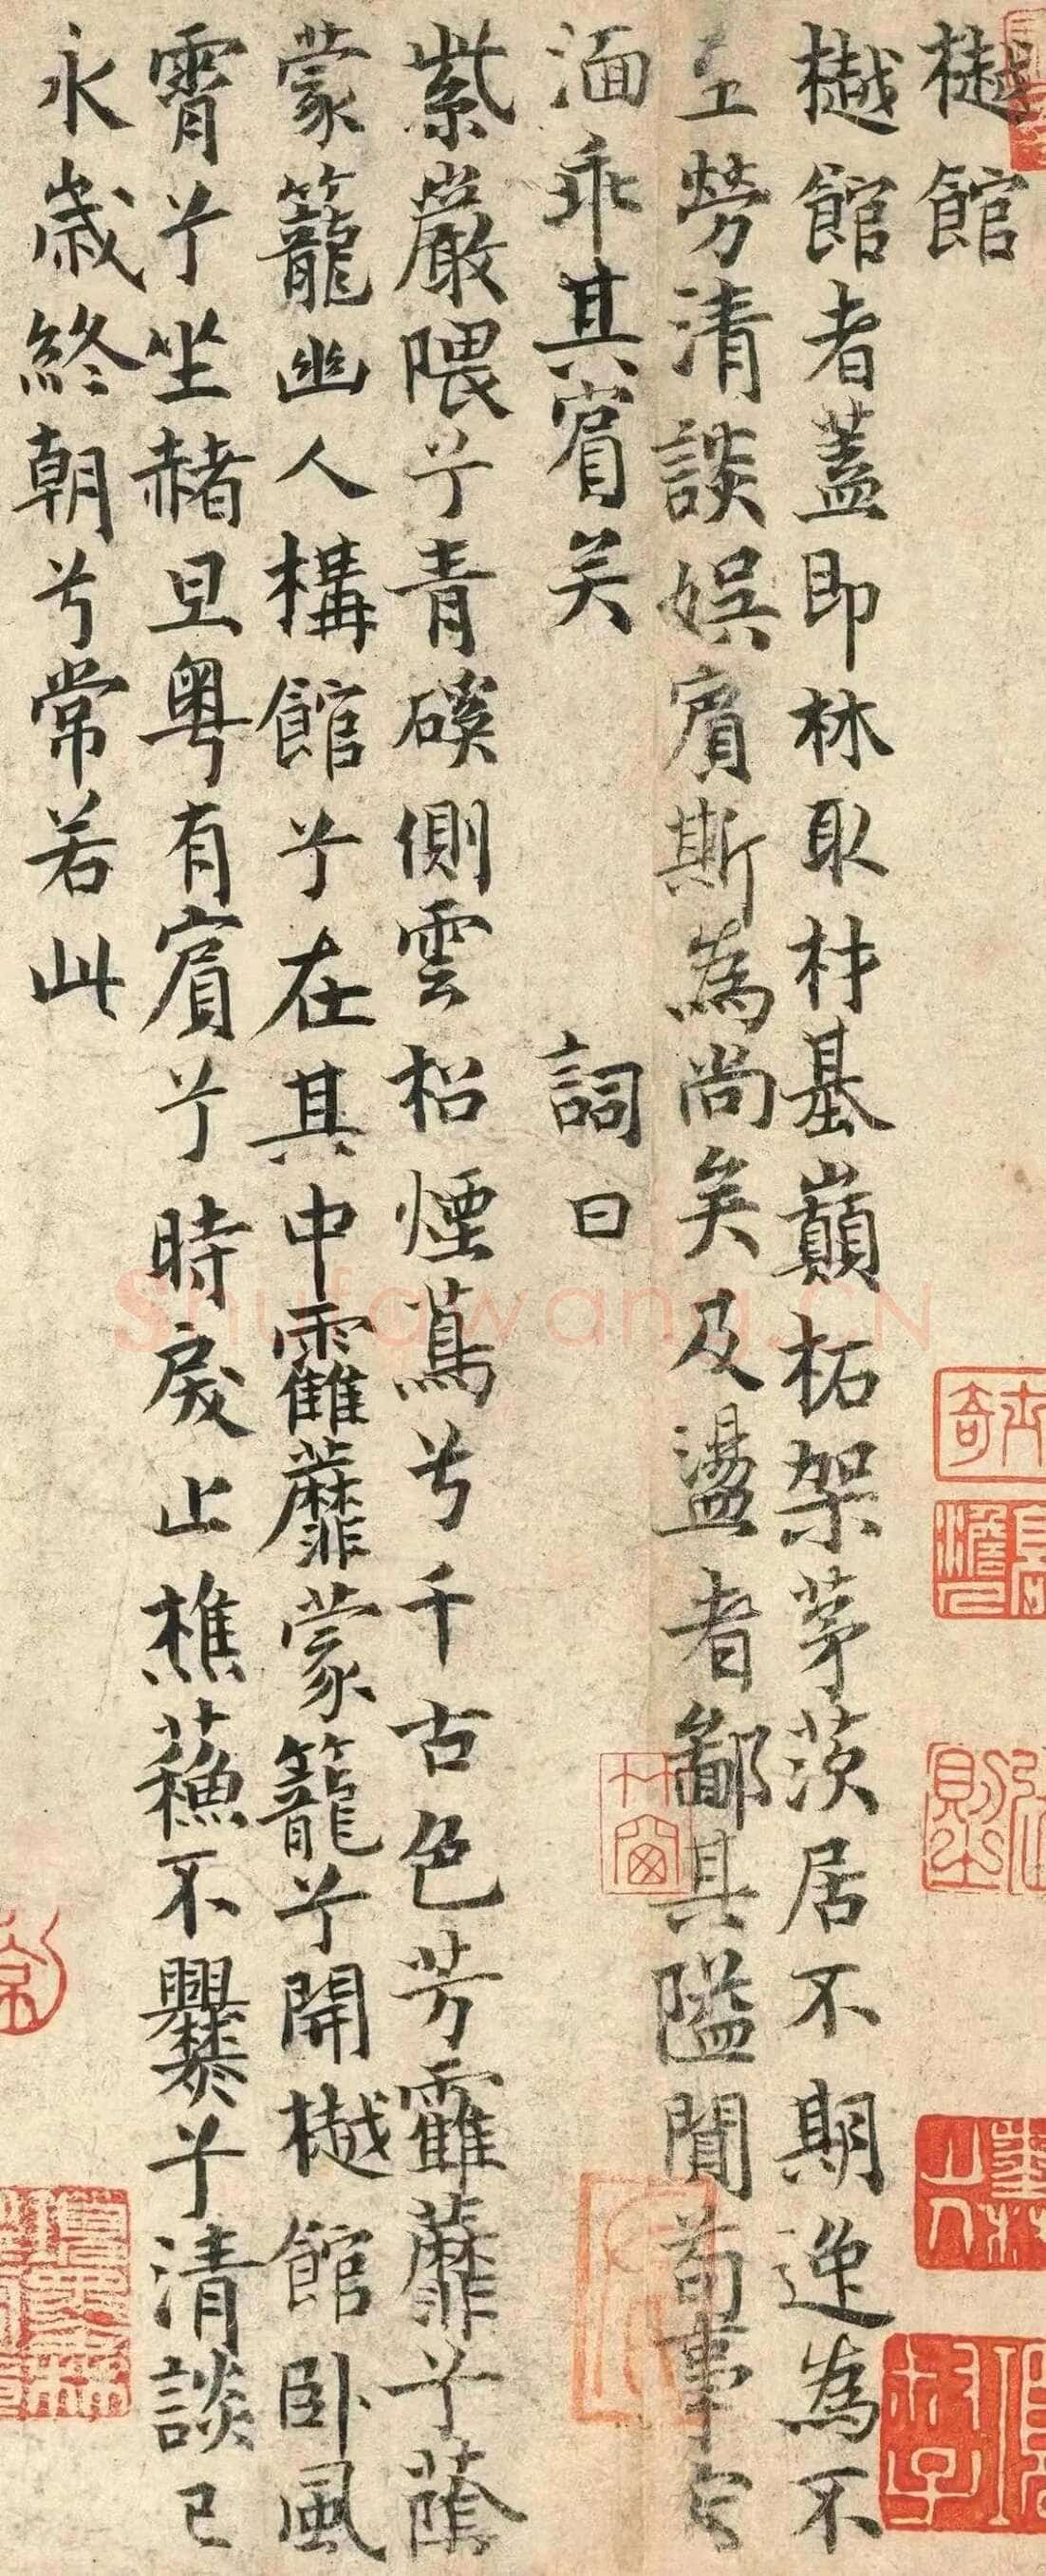 樾館
樾館者蓋即林取材基巔柘架茅茨居不期逸為不
至勞清談娛賓斯為尚矣及盪者鄙其隘聞苟事宏
湎乖其賓矣 詞曰
紫巖隈兮青磎側雲松煙蔦兮千古色芳靃蘼兮蔭
蒙籠幽人構館兮在其中靃蘼蒙籠兮開樾館臥風
霄兮坐赭旦粵有賓兮時戾止樵蘇不爨兮清談已
永歲終朝兮常若此
shufawang.CN